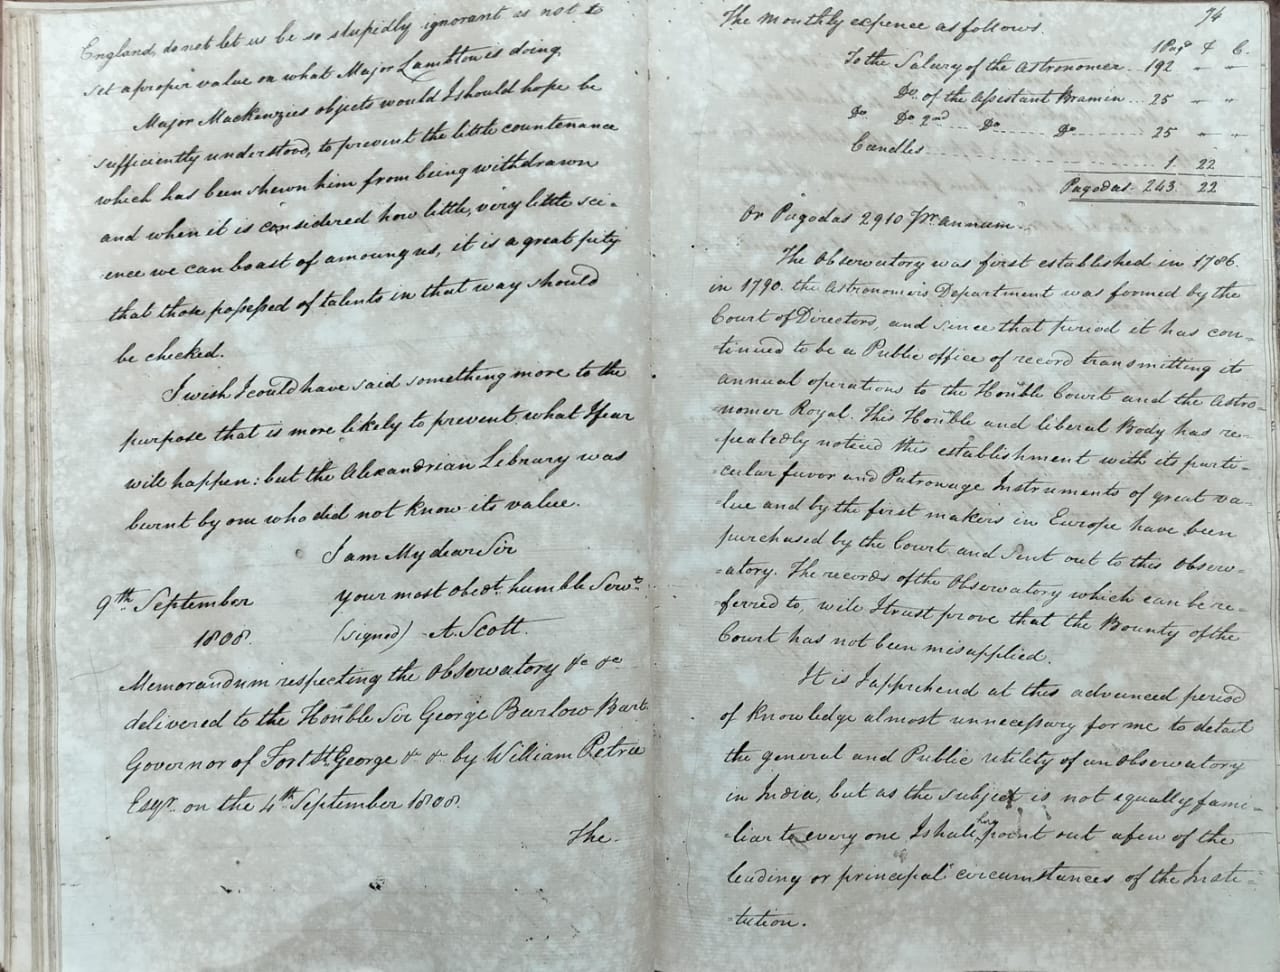 England, do not let us be so stupidly ignorant as not to
set a proper value on what Major Lambton is doing.
Major Mackenzies objects would I should hope be
sufficiently understood, to prevent the little countenance
which has been shewn him from being withdrawn
and when it is considered how little, very little sci-
ence we can boast of amoung us, it is a great pity
that those possessed of talents in that way should
be checked.
I wish I could have said something more to the
purpose that is more likely to prevent what I fear
will happen: but the Alexandrian Library was
burnt by one who did not know its value.
I am My dear Sir
9th September your most obedt. humble Servt.
1808. (signed) A. Scott.
Memorandum respecting the Observatory &c &c
delivered to the Honble Sir George Barlow Bart
Governor of Fort St. George &c &c by William Petrie
Esqr. on the 4th September 1808.
The
74
The Monthly expence as follows.
Pags F C.
To the Salary of the Astronomer .. 192 " "
Do. of the Assistant Bramin ... 25 " "
Do. Do 2nd .... Do ........ Do .... 25 " "
Candles .................... 1. 22
Pagodas. 243. 22
Or Pagodas 2910 Pr. annum.
The Observatory was first established in 1786.
in 1790. the Astronomers Department was formed by the
Court of Directors, and since that period it has con-
-tinued to be a Public office of record transmitting its
annual operations to the Honble Court and the Astro-
-nomer Royal. This Honble and liberal Body has re-
-peatedly noticed this establishment with its parti-
-cular favor and Patronage Instruments of great va-
-lue and by the first makers in Europe have been
purchased by the Court and Sent out to this Observ-
-atory. The records of the Observatory which can be re-
-ferred to, will I trust prove that the Bounty of the
Court has not been misapplied.
It is I apprehend at this advanced period
of Knowledge almost unnecessary for me to detail
the general and Public utility of an Observatory
in India, but as the subject is not equally fami-
-liar to every one I shall here point out a few of the
leading or principal circumstances of the Insti-
-tution.